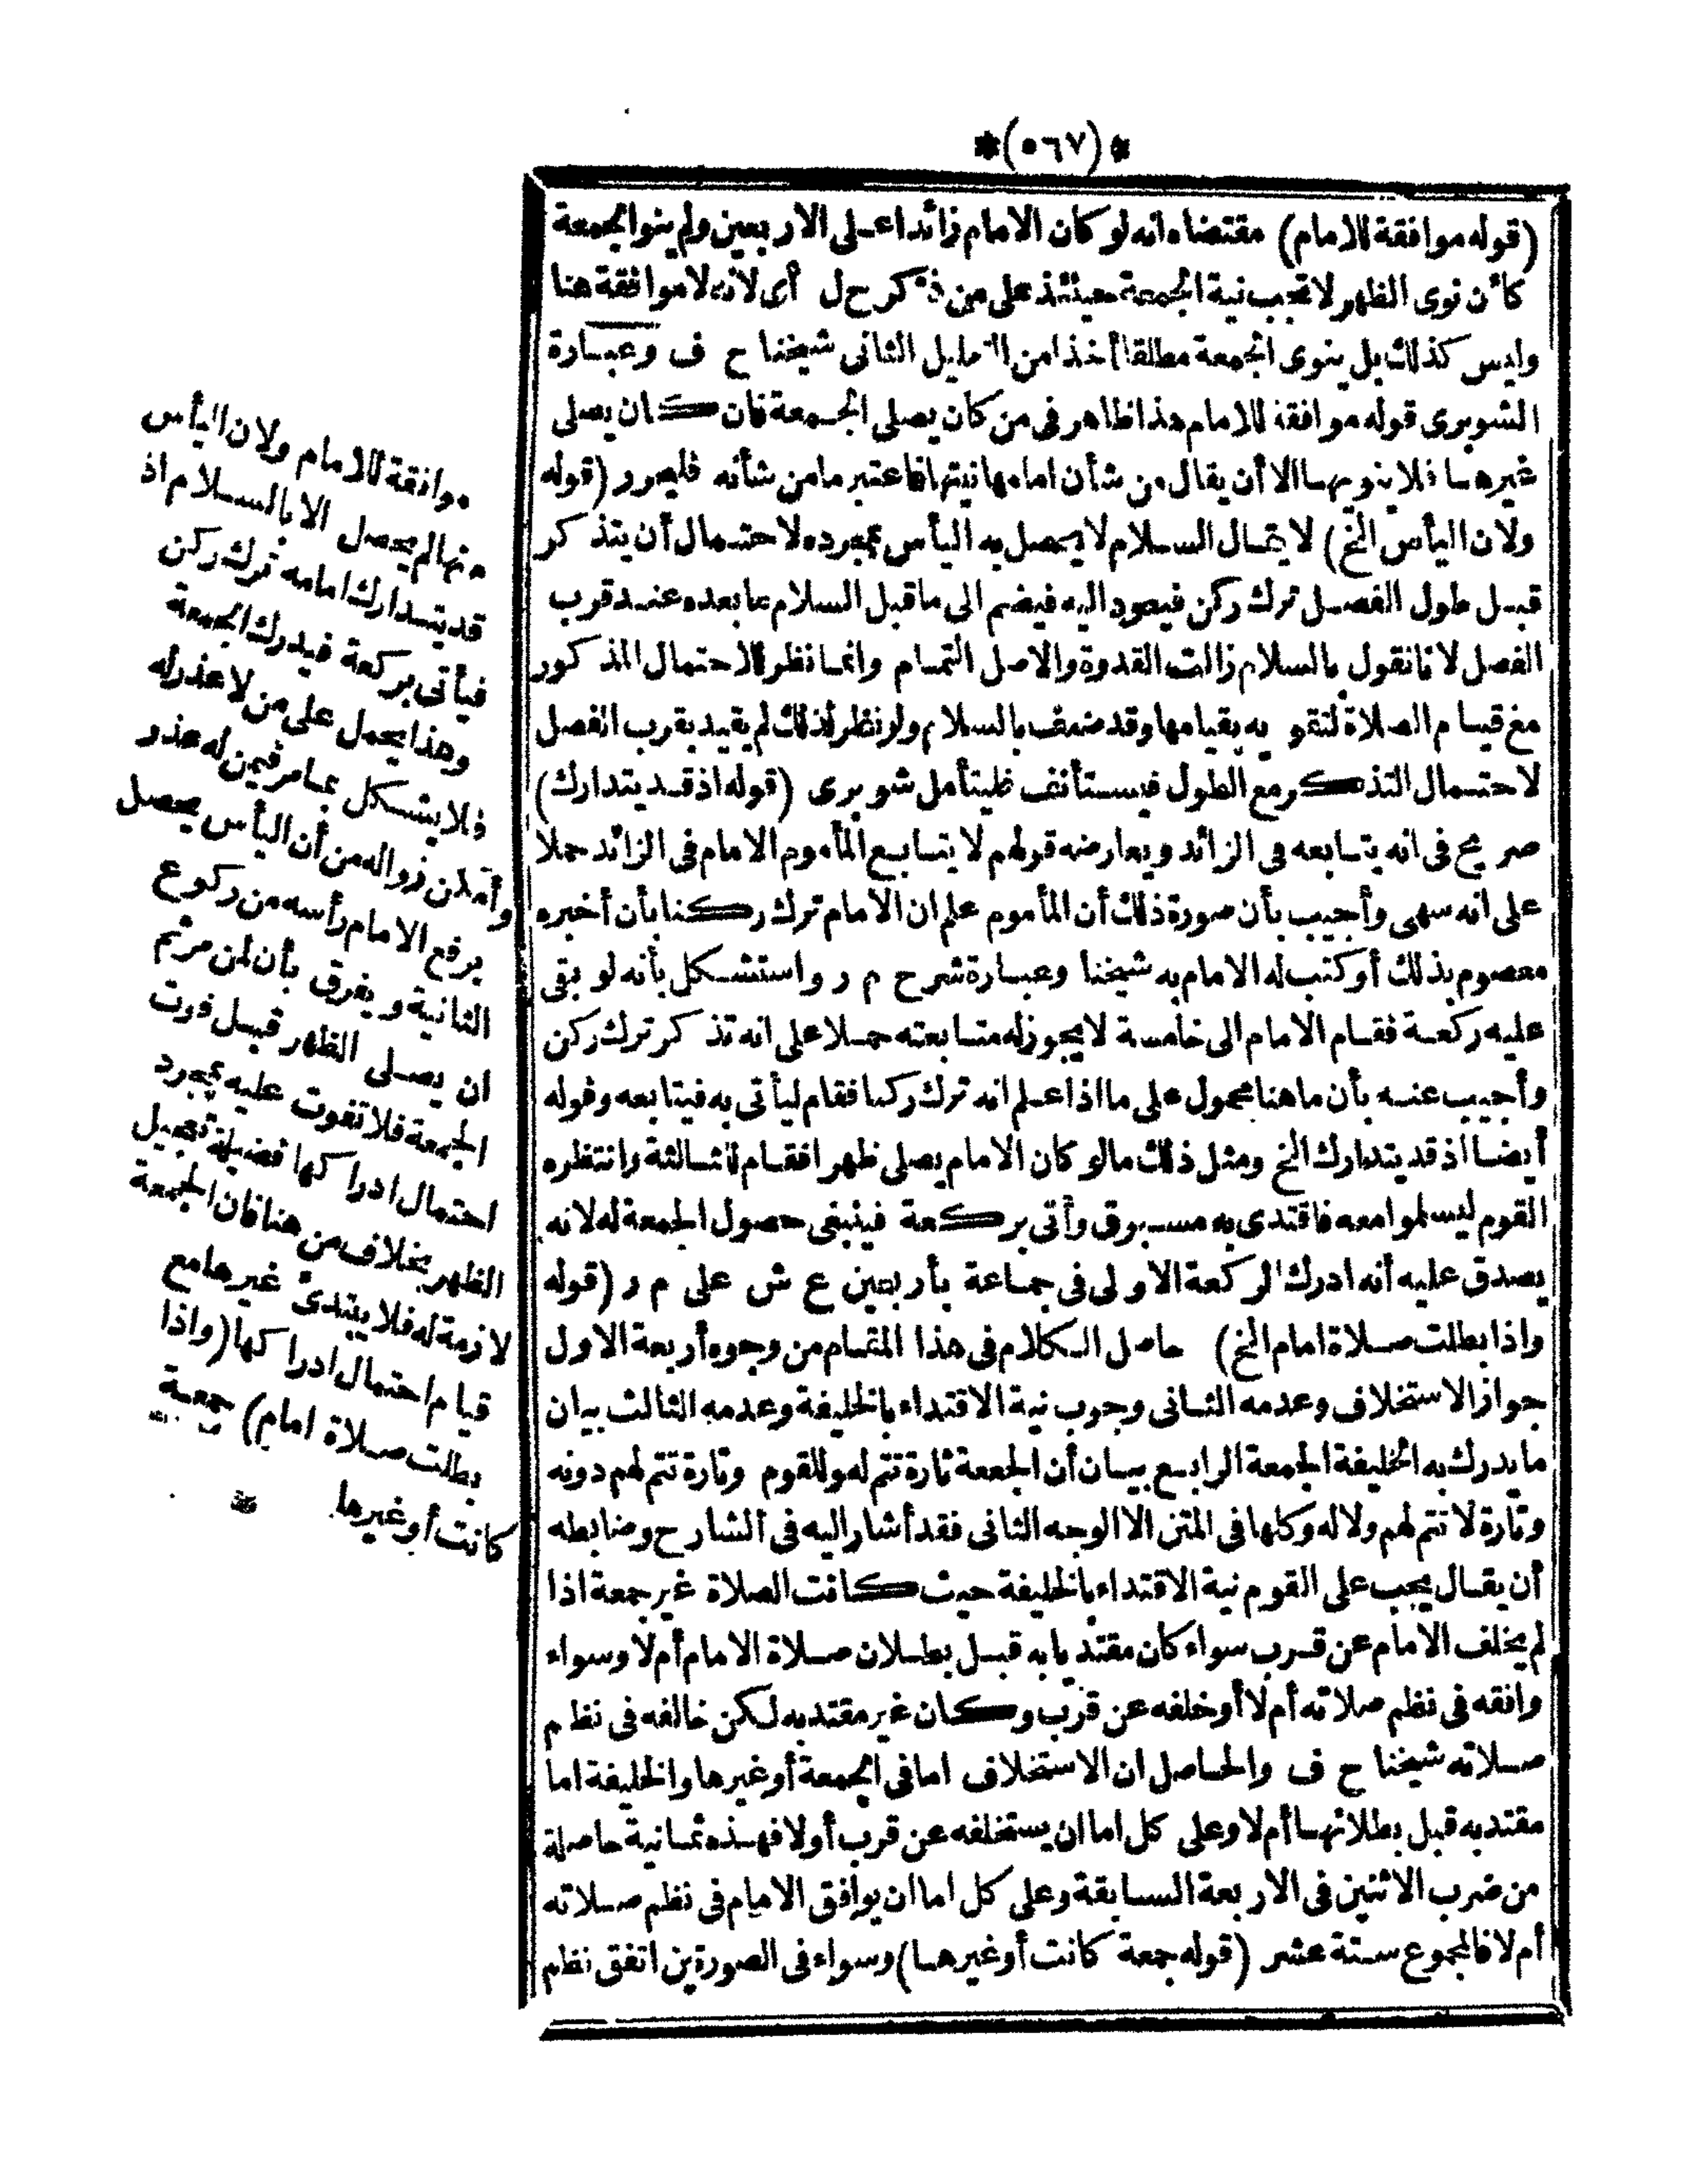 *(٥٦٧)*
(قوله موافقة للامام) مقتضاه انه لو كان الامام زائدا على الاربعين ولم ينو الجمعة
كأن نوى الظهر لا تجب نية الجمعة حينئذ على من ذكر ح ل أى لانه لا موافقة هنا
وليس كذلك بل ينوى الجمعة مطلقا أخذا من التعليل الثانى شيخنا ح ف وعبارة
الشوبرى قوله موافقة للامام هذا ظاهر فى من كان يصلى الجمعة فان كان يصلى
غيرها فلا ينويها الا أن يقال من شأن امامها نيتها فاعتبر ما من شأنه فليحرر (قوله
ولان اليأس الخ) لا يقال السلام لا يحصل به اليأس بمجرده لاحتمال أن يتذكر
قبل طول الفصل ترك ركن فيعود اليه فيضم الى ما قبل السلام ما بعده عند قرب
الفصل لانا نقول بالسلام زالت القدوة والاصل التمام وانما نظر للاحتمال المذكور
مع قيام الصلاة لتقويه بقيامها وقد ضعف بالسلام ولو نظر لذلك لم يقيد بقرب الفصل
لاحتمال التذكر مع الطول فيستأنف فليتأمل شوبرى (قوله اذ قد يتدارك)
صريح فى انه يتابعه فى الزائد ويعارضه قولهم لا يتابع المأموم الامام فى الزائد حملا
على انه سهى وأجيب بأن صورة ذلك أن المأموم علم ان الامام ترك ركنا بأن أخبره
معصوم بذلك أو كتب له الامام به شيخنا وعبارة شرح م ر واستشكل بأنه لو بقى
عليه ركعة فقام الامام الى خامسة لا يجوز له متابعته حملا على انه تذكر ترك ركن
وأجيب عنه بأن ما هنا محمول على ما اذا علم انه ترك ركنا فقام ليأتى به فيتابعه وقوله
أيضا اذ قد يتدارك الخ ومثل ذلك مالو كان الامام يصلى ظهرا فقام لثالثة وانتظره
القوم ليسلموا معه فاقتدى به مسبوق وأتى بركعة فينبغى حصول الجمعة له لانه
يصدق عليه أنه ادرك الركعة الاولى فى جماعة بأربعين ع ش على م ر (قوله
واذا بطلت صلاة امام الخ) حاصل الكلام فى هذا المقام من وجوه أربعة الاول
جواز الاستخلاف وعدمه الثانى وجوب نية الاقتداء بالخليفة وعدمه الثالث بيان
ما يدرك به الخليفة الجمعة الرابع بيان أن الجمعة تارة تتم له وللقوم وتارة تتم لهم دونه
وتارة لا تتم لهم ولا له وكلها فى المتن الا الوجه الثانى فقد أشار اليه فى الشارح وضابطه
أن يقال يجب على القوم نية الاقتداء بالخليفة حيث كانت الصلاة غير جمعة اذا
لم يخلف الامام عن قرب سواء كان مقتديا به قبل بطلان صلاة الامام أم لا وسواء
وافقه فى نظم صلاته أم لا أو خلفه عن قرب وكان غير مقتد به لكن خالفه فى نظم
صلاته شيخنا ح ف والحاصل ان الاستخلاف اما فى الجمعة أو غيرها والخليفة اما
مقتد به قبل بطلانها أم لا وعلى كل اما ان يستخلفه عن قرب أولا فهذه ثمانية حاصلة
من ضرب الاثنين فى الاربعة السابقة وعلى كل اما ان يوافق الامام فى نظم صلاته
أم لا فالمجموع ستة عشر (قوله جمعة كانت أو غيرها) وسواء فى الصورتين اتفق نظم
موافقة للامام ولان اليأس
منها لم يحصل الا بالسلام اذ
قد يتدارك امامه ترك ركن
فيأتى بركعة فيدرك الجمعة
وهذا يحمل على من لا عذر له
فلا يشكل بما مر فيمن له عذر
وأمكن زواله من أن اليأس يحصل
برفع الامام رأسه من ركوع
الثانية ويفرق بأن لمن مر ثم
ان يصلى الظهر قبل فوت
الجمعة فلا تفوت عليه بمجرد
احتمال ادراكها فضيلة تعجيل
الظهر بخلاف من هنا فان الجمعة
لازمة له فلا يبتدئ غيرها مع
قيام احتمال ادراكها (واذا
بطلت صلاة امام) جمعة
كانت أو غيرها